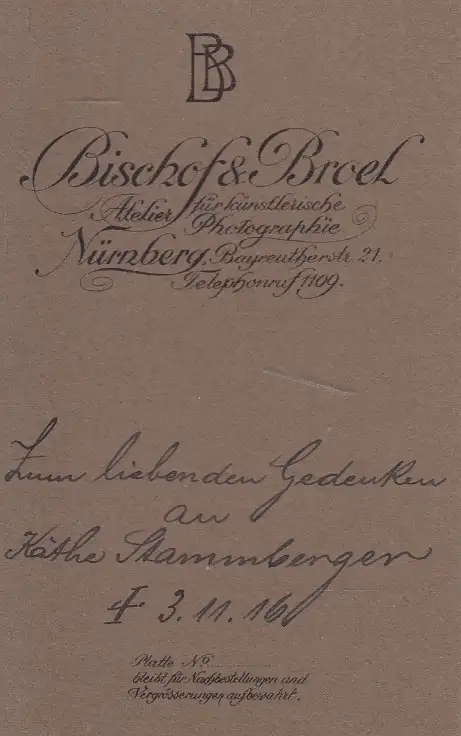 BB
Bischof & Broel
Atelier für künstlerische
Photographie
Nürnberg, Bayreutherstr. 21.
Telephonruf 1109.
Zum liebenden Gedenken
an
Käthe Stammberger
3.11.16
Platte No
bleibt für Nachbestellungen und
Vergrösserungen aufbewahrt.